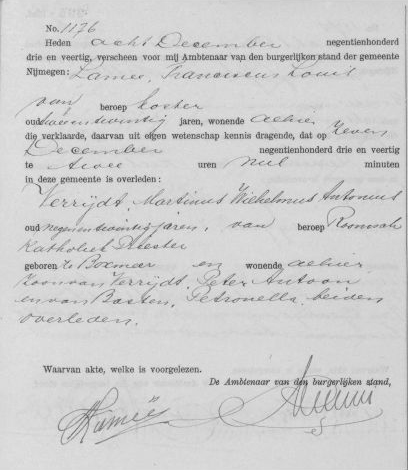 No. 1176
Heden acht December negentienhonderd
drie en veertig, verscheen voor mij Ambtenaar van den burgerlijken stand der gemeente
Nijmegen: Lamee, Franciscus Louis
van beroep koster
oud twintig jaren, wonende alhier
die verklaarde, daarvan uit eigen wetenschap kennis dragende, dat op zeven
December negentienhonderd drie en veertig
te twee uren nul minuten
in deze gemeente is overleden:
Verrijdt, Martinus Wilhelmus Antonius
oud negenentwintig jaren, van beroep Roomsch
Katholiek Priester
geboren te Boxmeer en wonende alhier
Zoon van Verrijdt, Peter Antoon
en van Basten, Petronella, beiden
overleden.
Waarvan akte, welke is voorgelezen.
De Ambtenaar van den burgerlijken stand,